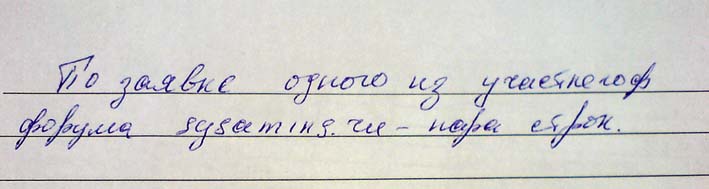 По заявке одного из участников
форума – пара строк.